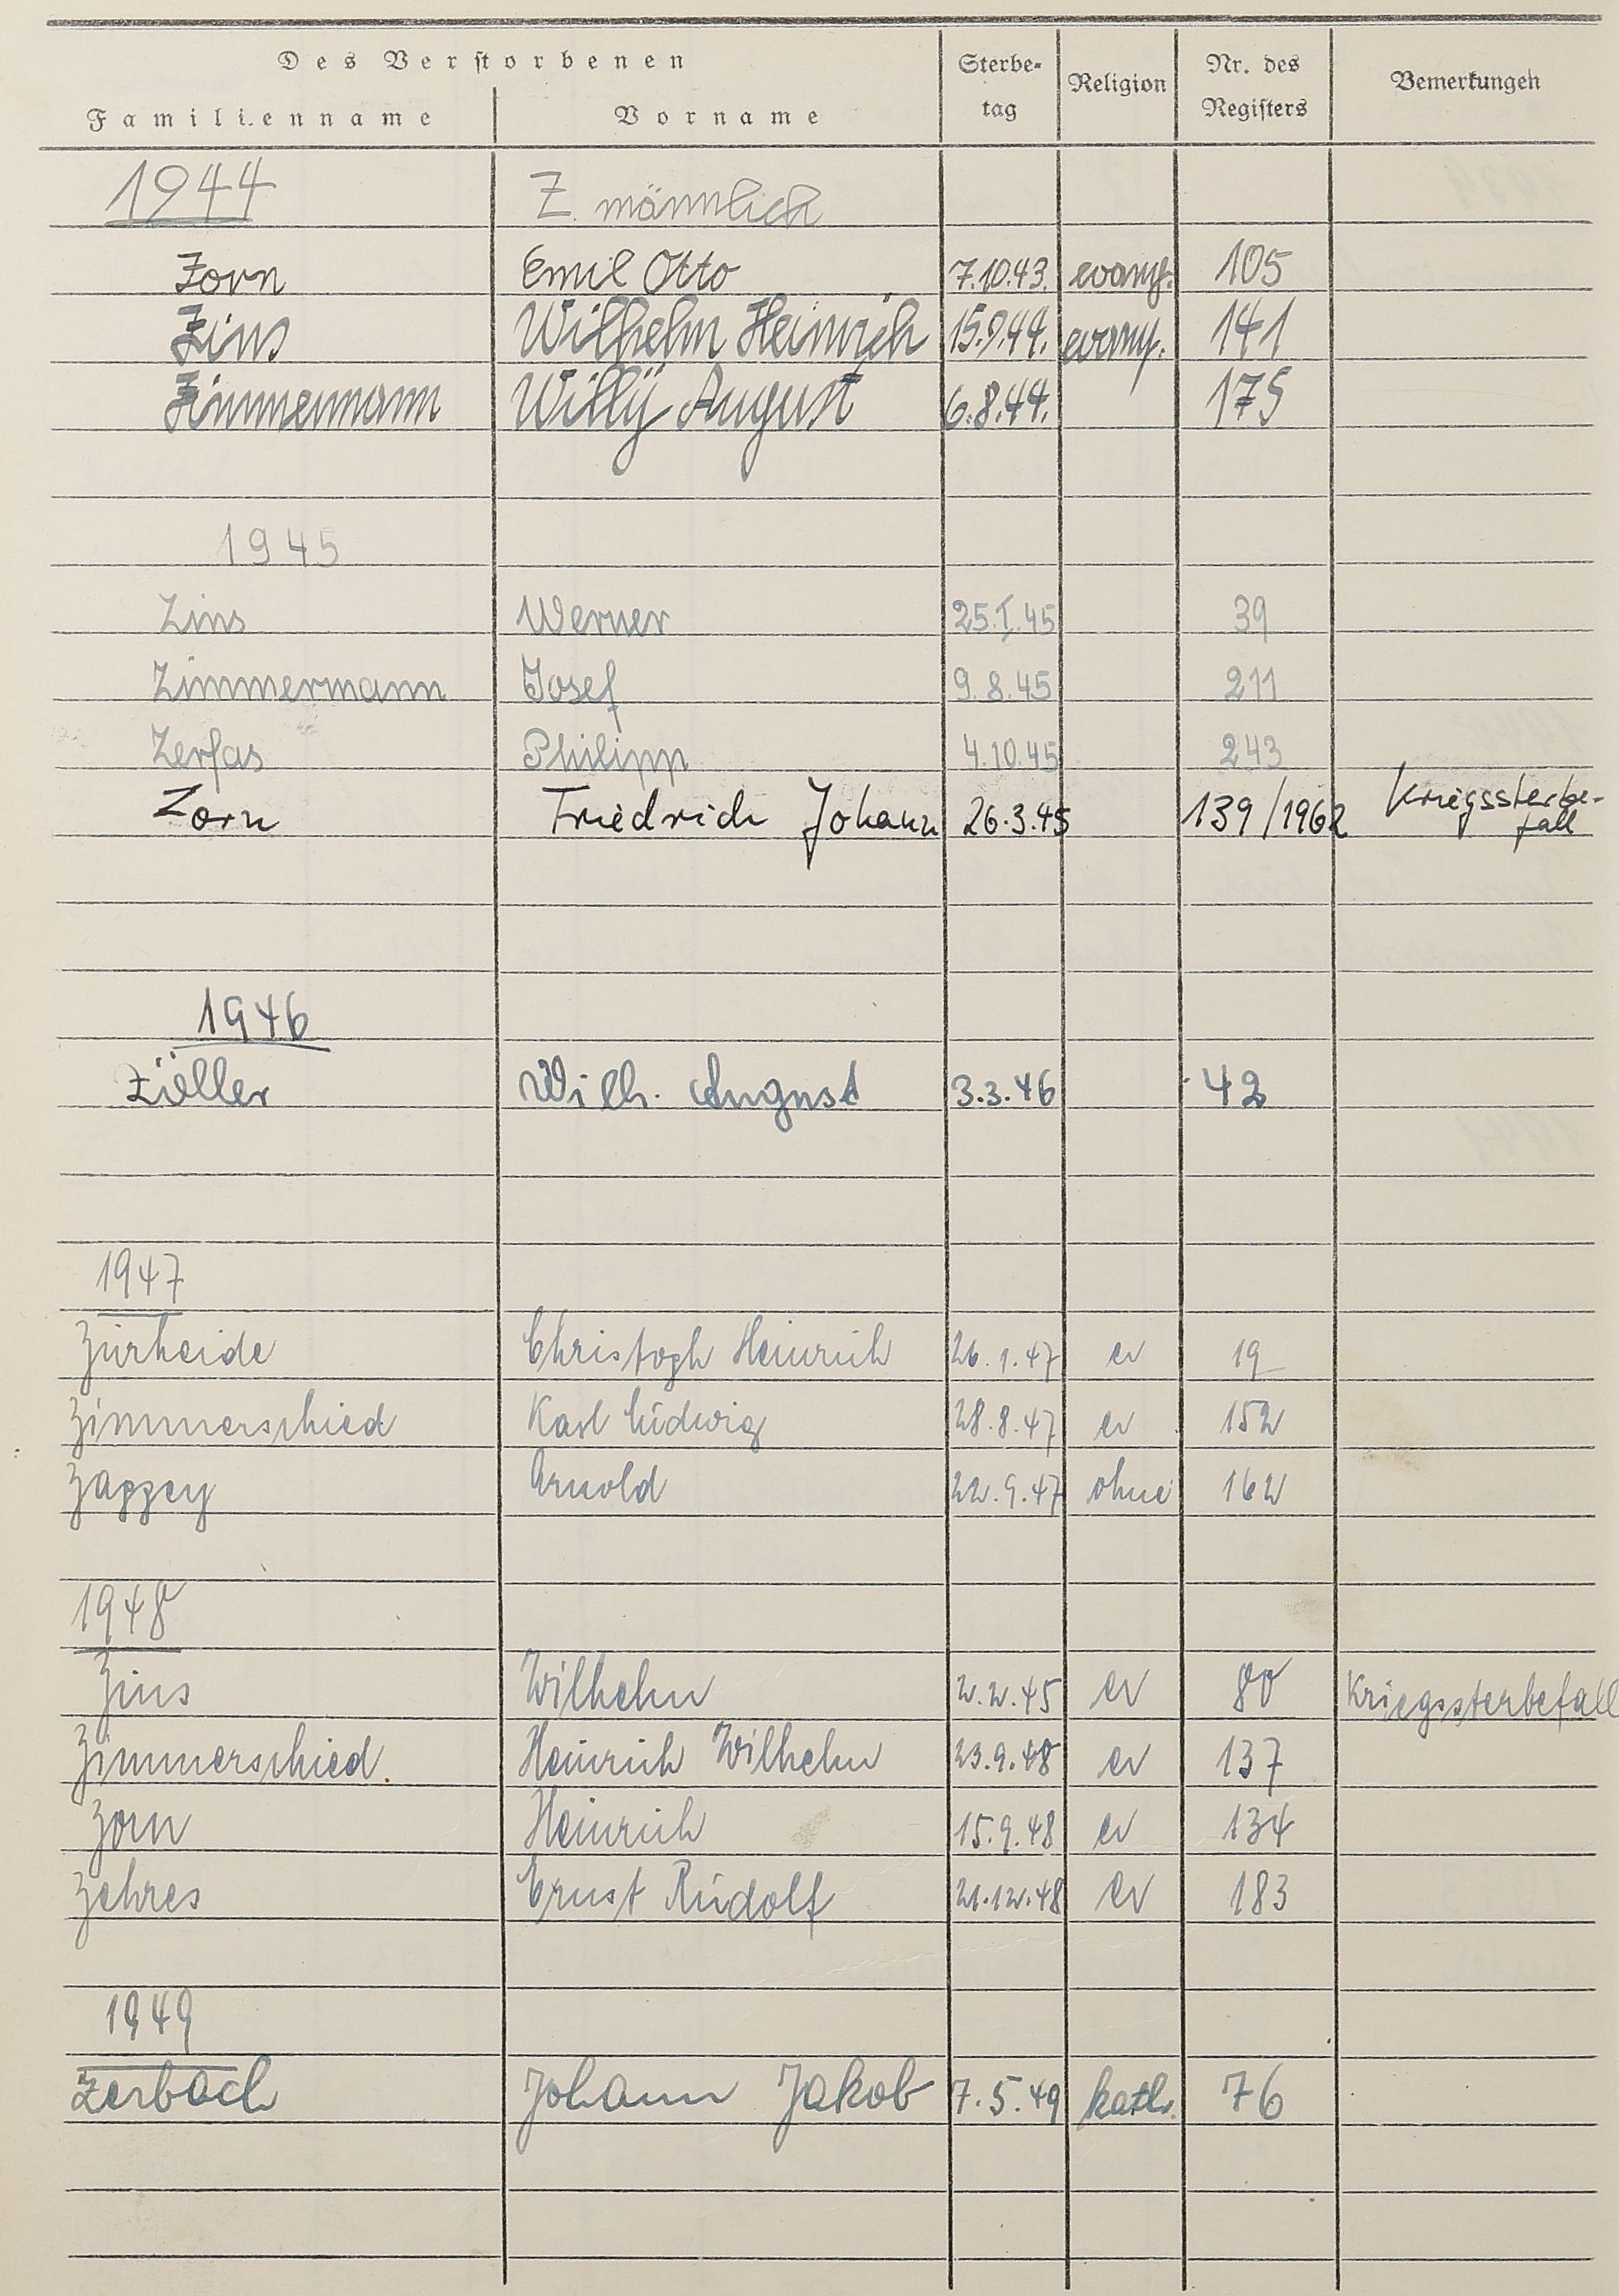 Des Verstorbenen
Familienname Vorname Sterbe-
tag Religion Nr. des
Registers Bemerkungen
1944 Z. männlich
Zorn Emil Otto 7.10.43. evang. 105
Zins Wilhelm Heinrich 15.9.44. evang. 141
Zimmermann Willy August 6.8.44. 175
1945
Zins Werner 25.I.45 39
Zimmermann Josef 9.8.45 211
Zerfas Philipp 4.10.45 243
Zorn Friedrich Johann 26.3.45 139/1962 Kriegssterbe-
fall
1946
Zöller Wilh. August 3.3.46 42
1947
Zurheide Christoph Heinrich 26.1.47 ev 19
Zimmerschied Karl Ludwig 28.8.47 ev 152
Zappey Arnold 22.9.47 ohne 162
1948
Zins Wilhelm 2.2.45 ev 80 Kriegssterbefall
Zimmerschied. Heinrich Wilhelm 23.9.48 ev 137
Zorn Heinrich 15.9.48 ev 134
Zehres Ernst Rudolf 21.12.48 ev 183
1949
Zerbach Johann Jakob 7.5.49 kath. 76